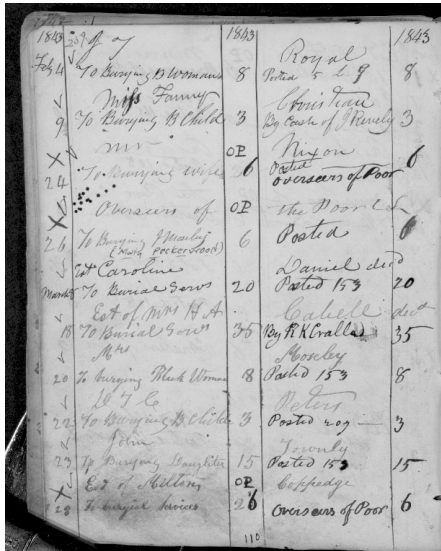 1843 1843 1843
Royal
Feb 4 To Burying B Woman 8 Posted 8
Miss Fanny Christian
9 To Burying B Child 3 By Cash of J 3
Mr Nixon
24 To Burying wife OP 6 Posted overseers of Poor 6
Overseers of OP the Poor
26 To Burying J 6 Posted 6
Est Caroline Daniel decd
March 8 To Burial Servs 20 Posted 153 20
Est of Mrs H A Cabell decd
18 To Burial Servs 35 By R K Cralle 35
Mrs Mosley
20 To burying Black Woman 8 Posted 153 8
Peters
22 To Burying B Child 3 Posted 209 3
John Townly
23 To Burying Daughter 15 Posted 153 15
Est of Coppedge
28 To burial services OP 6 Overseers of Poor 6
110